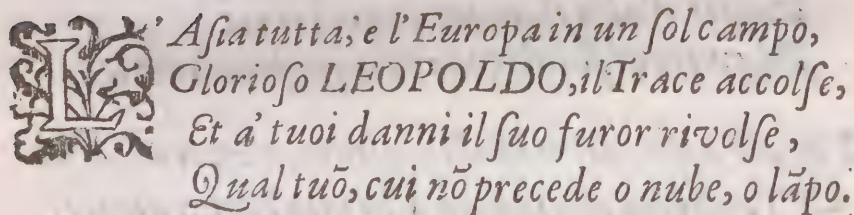 L'Aſia tutta, e l'Europa in un ſol campo,
Glorioſo LEOPOLDO, il Trace accolſe,
Et a' tuoi danni il ſuo furor rivolſe,
Qual tuõ, cui nõ precede o nube, o lãpo.